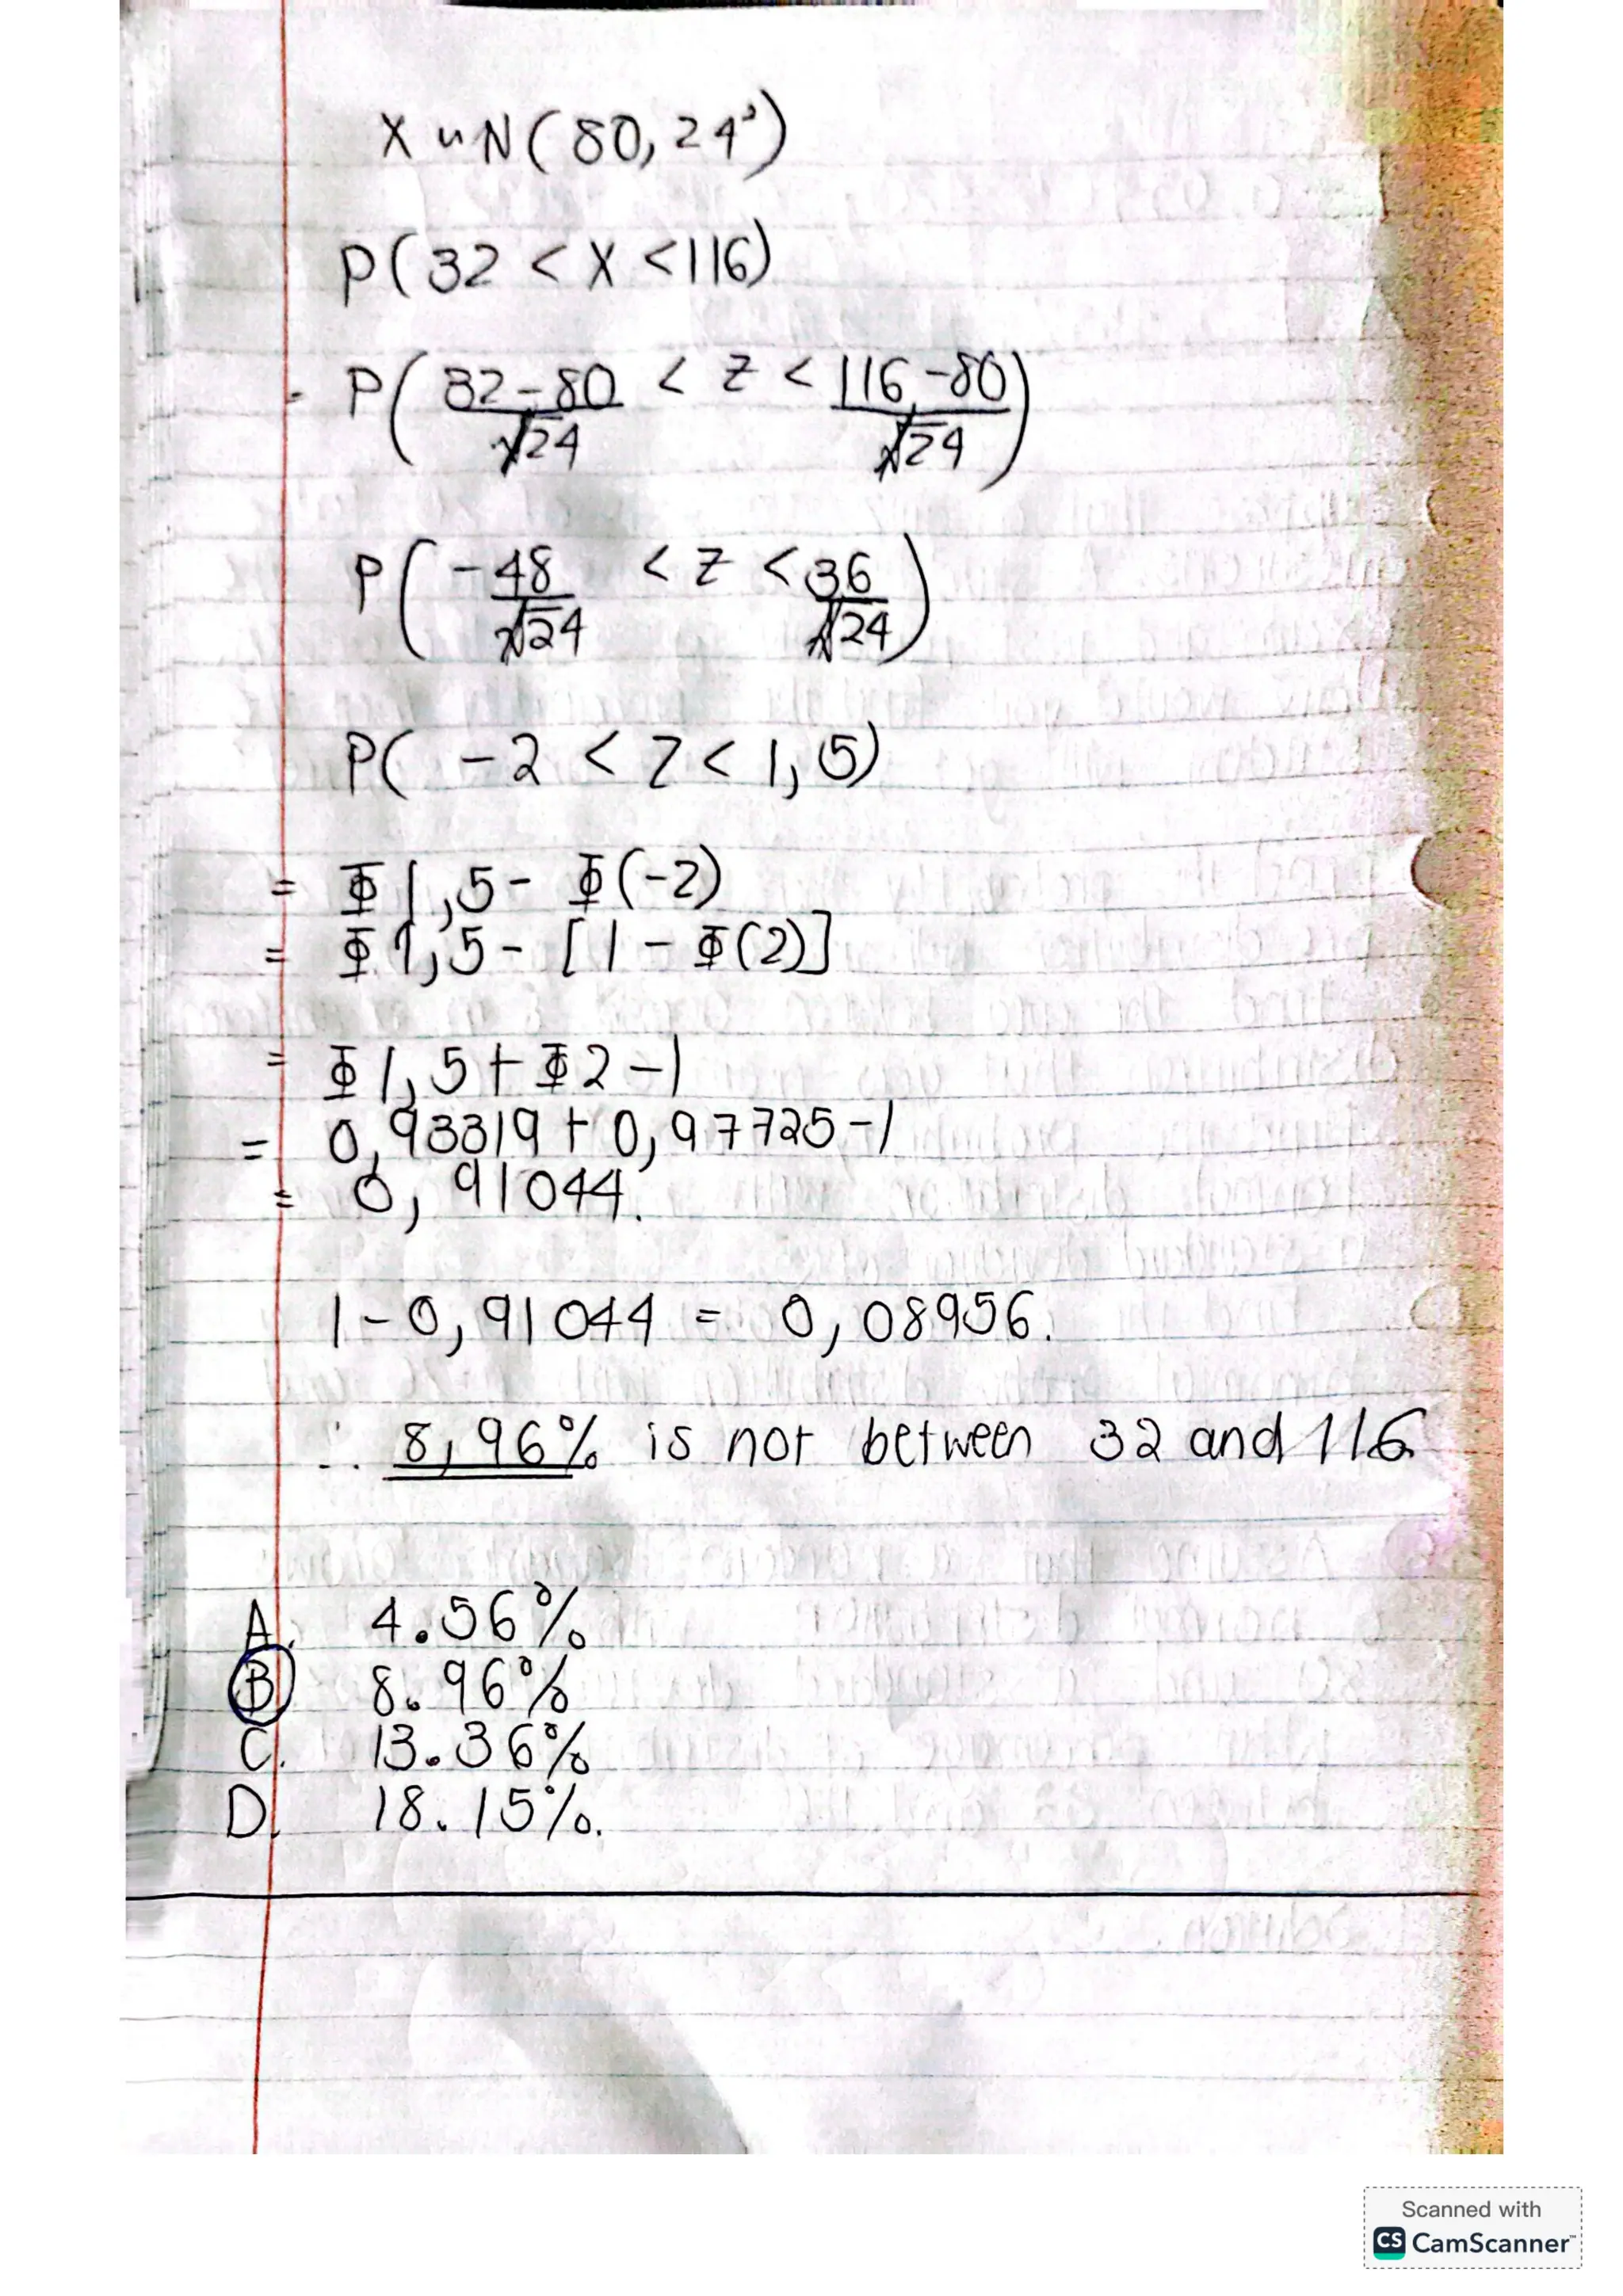 X ~ N(80, 24²)
P(32 < X < 116)
P(32-80/√24 < Z < 116-80/√24)
P(-48/√24 < Z < 36/√24)
P( -2 < Z < 1,5)
= Φ1,5 - Φ(-2)
= Φ1,5 - [1 - Φ(2)]
= Φ1,5 + Φ2 - 1
= 0,93319 + 0,97725 - 1
= 0,91044.
1 - 0,91044 = 0,08956.
∴ 8,96% is not between 32 and 116
A. 4.56%
B 8.96%
C. 13.36%
D. 18.15%.
Scanned with
CS CamScanner™